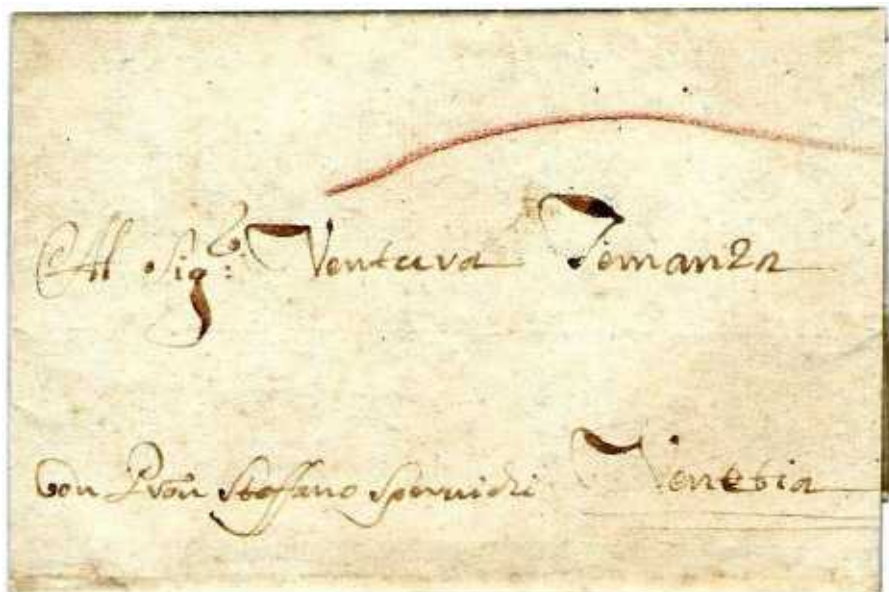 Al Sig:re Ventura Temanza
Con Pron Steffano Spervichi Venetia